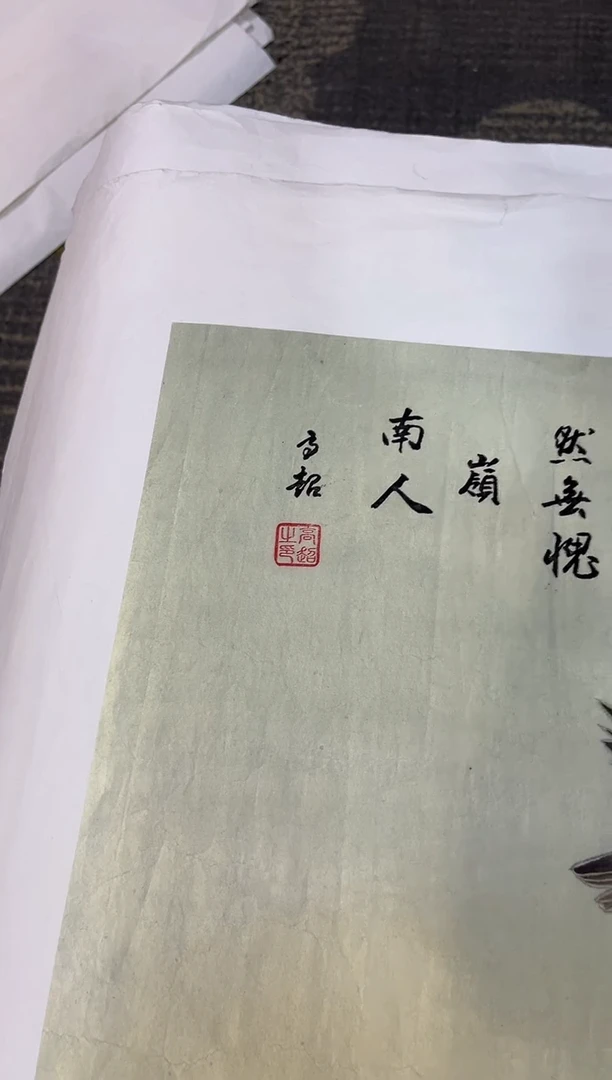 然無愧
嶺
南人
高超
高超之印